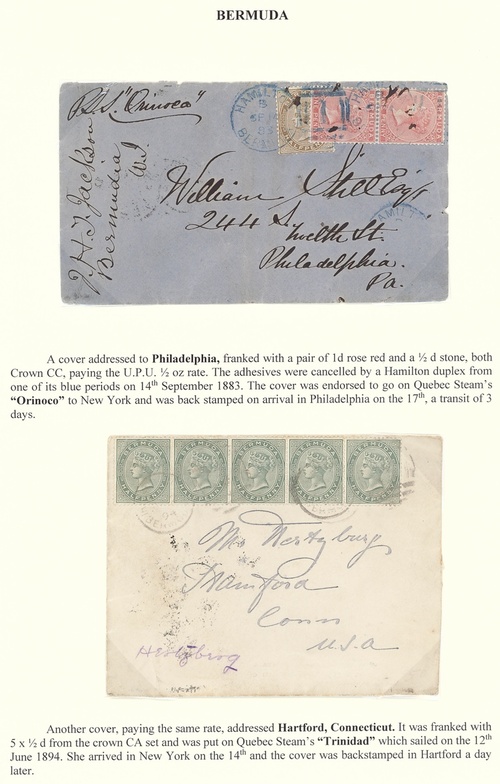 BERMUDA
P.S. "Orinoco"
J. H. T. Jackson
Bermuda
W.I
HAMILTON
BERMUDA
William Still Esq
244 S. Twelth St.
Philadelphia.
Pa.
A cover addressed to Philadelphia, franked with a pair of 1d rose red and a ½ d stone, both
Crown CC, paying the U.P.U. ½ oz rate. The adhesives were cancelled by a Hamilton duplex from
one of its blue periods on 14th September 1883. The cover was endorsed to go on Quebec Steam's
"Orinoco" to New York and was back stamped on arrival in Philadelphia on the 17th, a transit of 3
days.
BERMUDA BERMUDA BERMUDA BERMUDA BERMUDA
HALFPENNY HALFPENNY HALFPENNY HALFPENNY HALFPENNY
Hartford
Conn
U.S.A
Another cover, paying the same rate, addressed Hartford, Connecticut. It was franked with
5 x ½ d from the crown CA set and was put on Quebec Steam's "Trinidad" which sailed on the 12th
June 1894. She arrived in New York on the 14th and the cover was backstamped in Hartford a day
later.